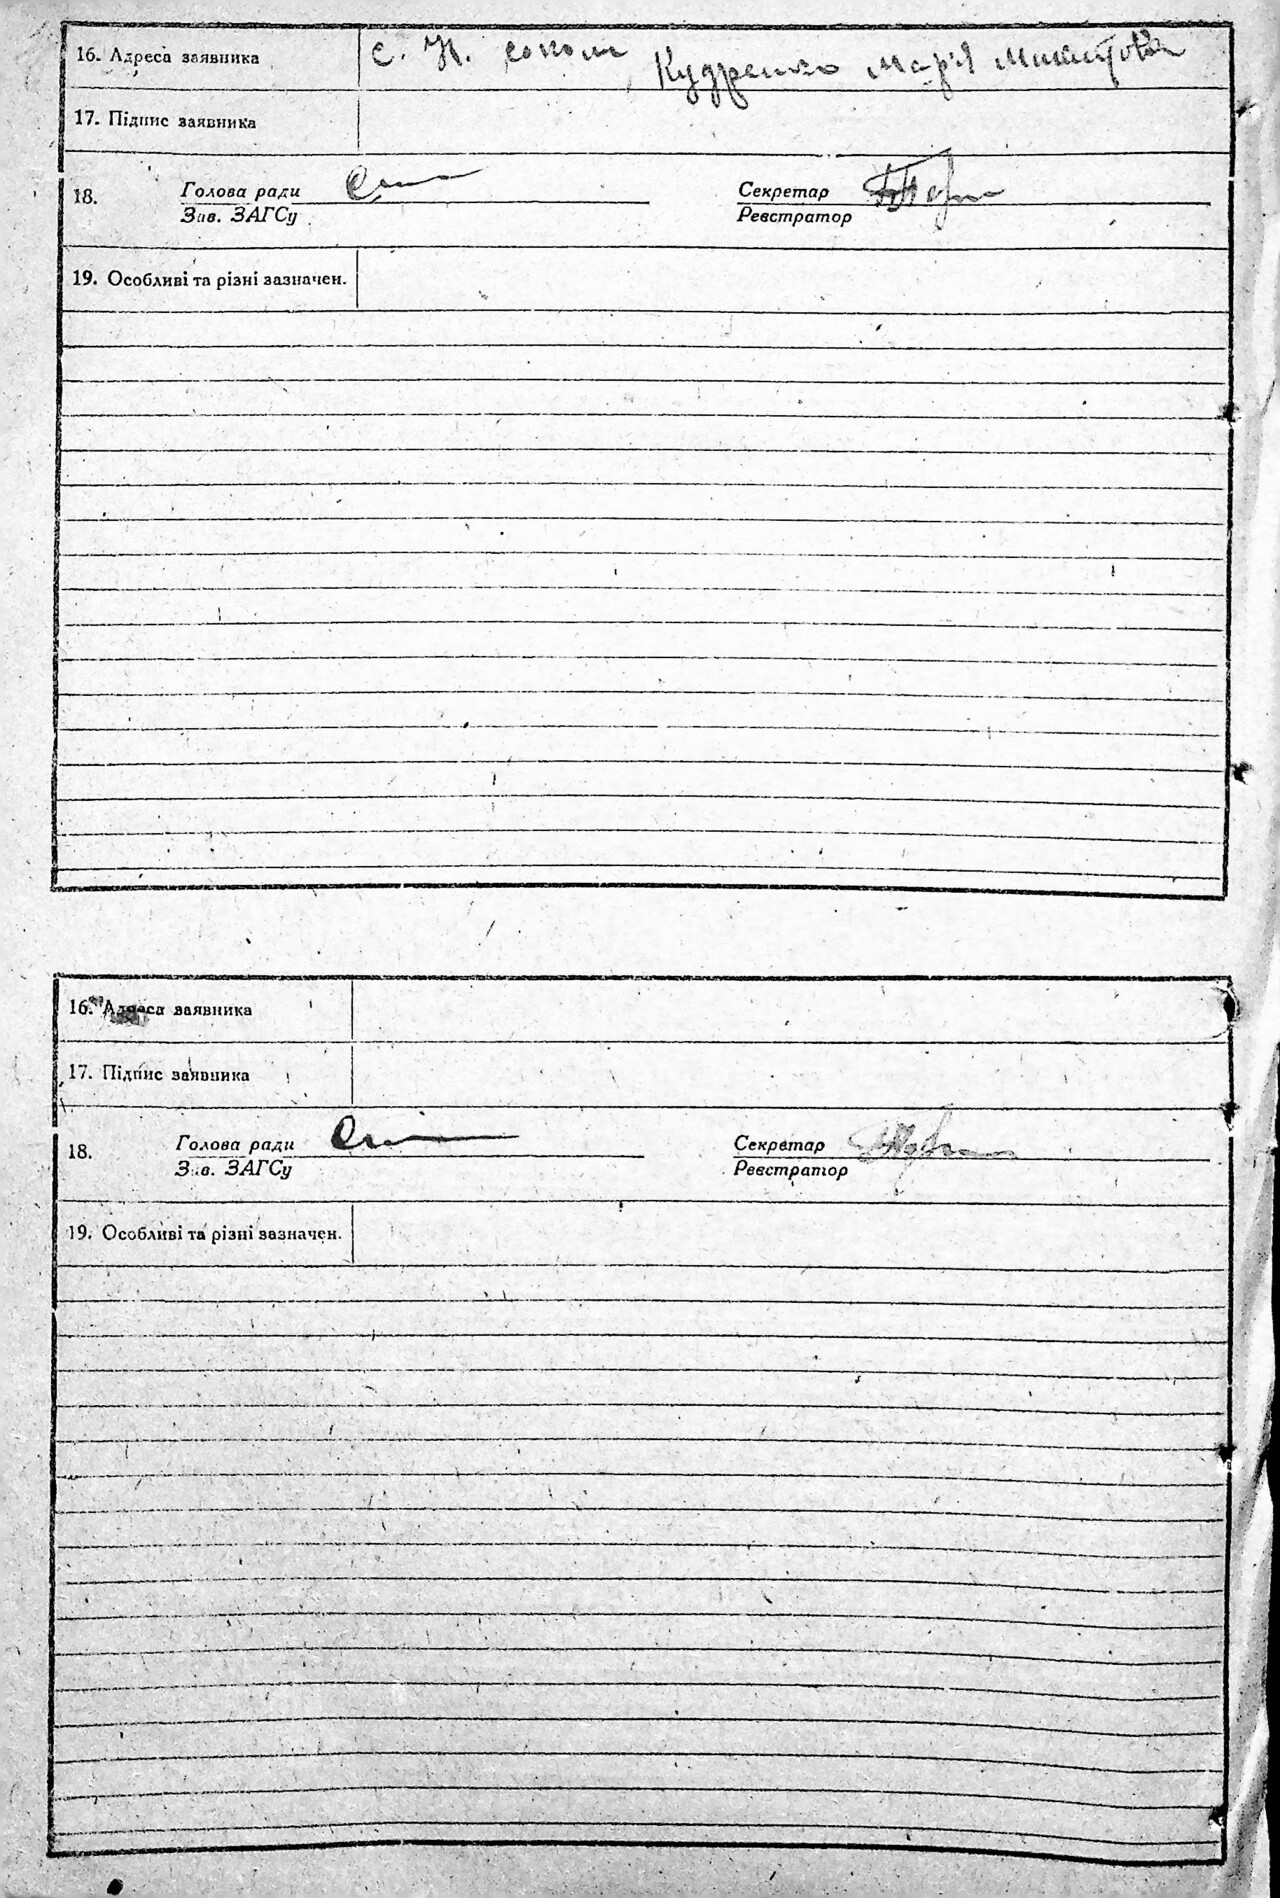 16. Адреса заявника с. Н. соколи Кудренко Мар'я Микитовна
17. Підпис заявника
18. Голова ради Секретар
Зав. ЗАГСу Реєстратор
19. Особливі та різні зазначен.
16. Адреса заявника
17. Підпис заявника
18. Голова ради Секретар
Зав. ЗАГСу Реєстратор
19. Особливі та різні зазначен.